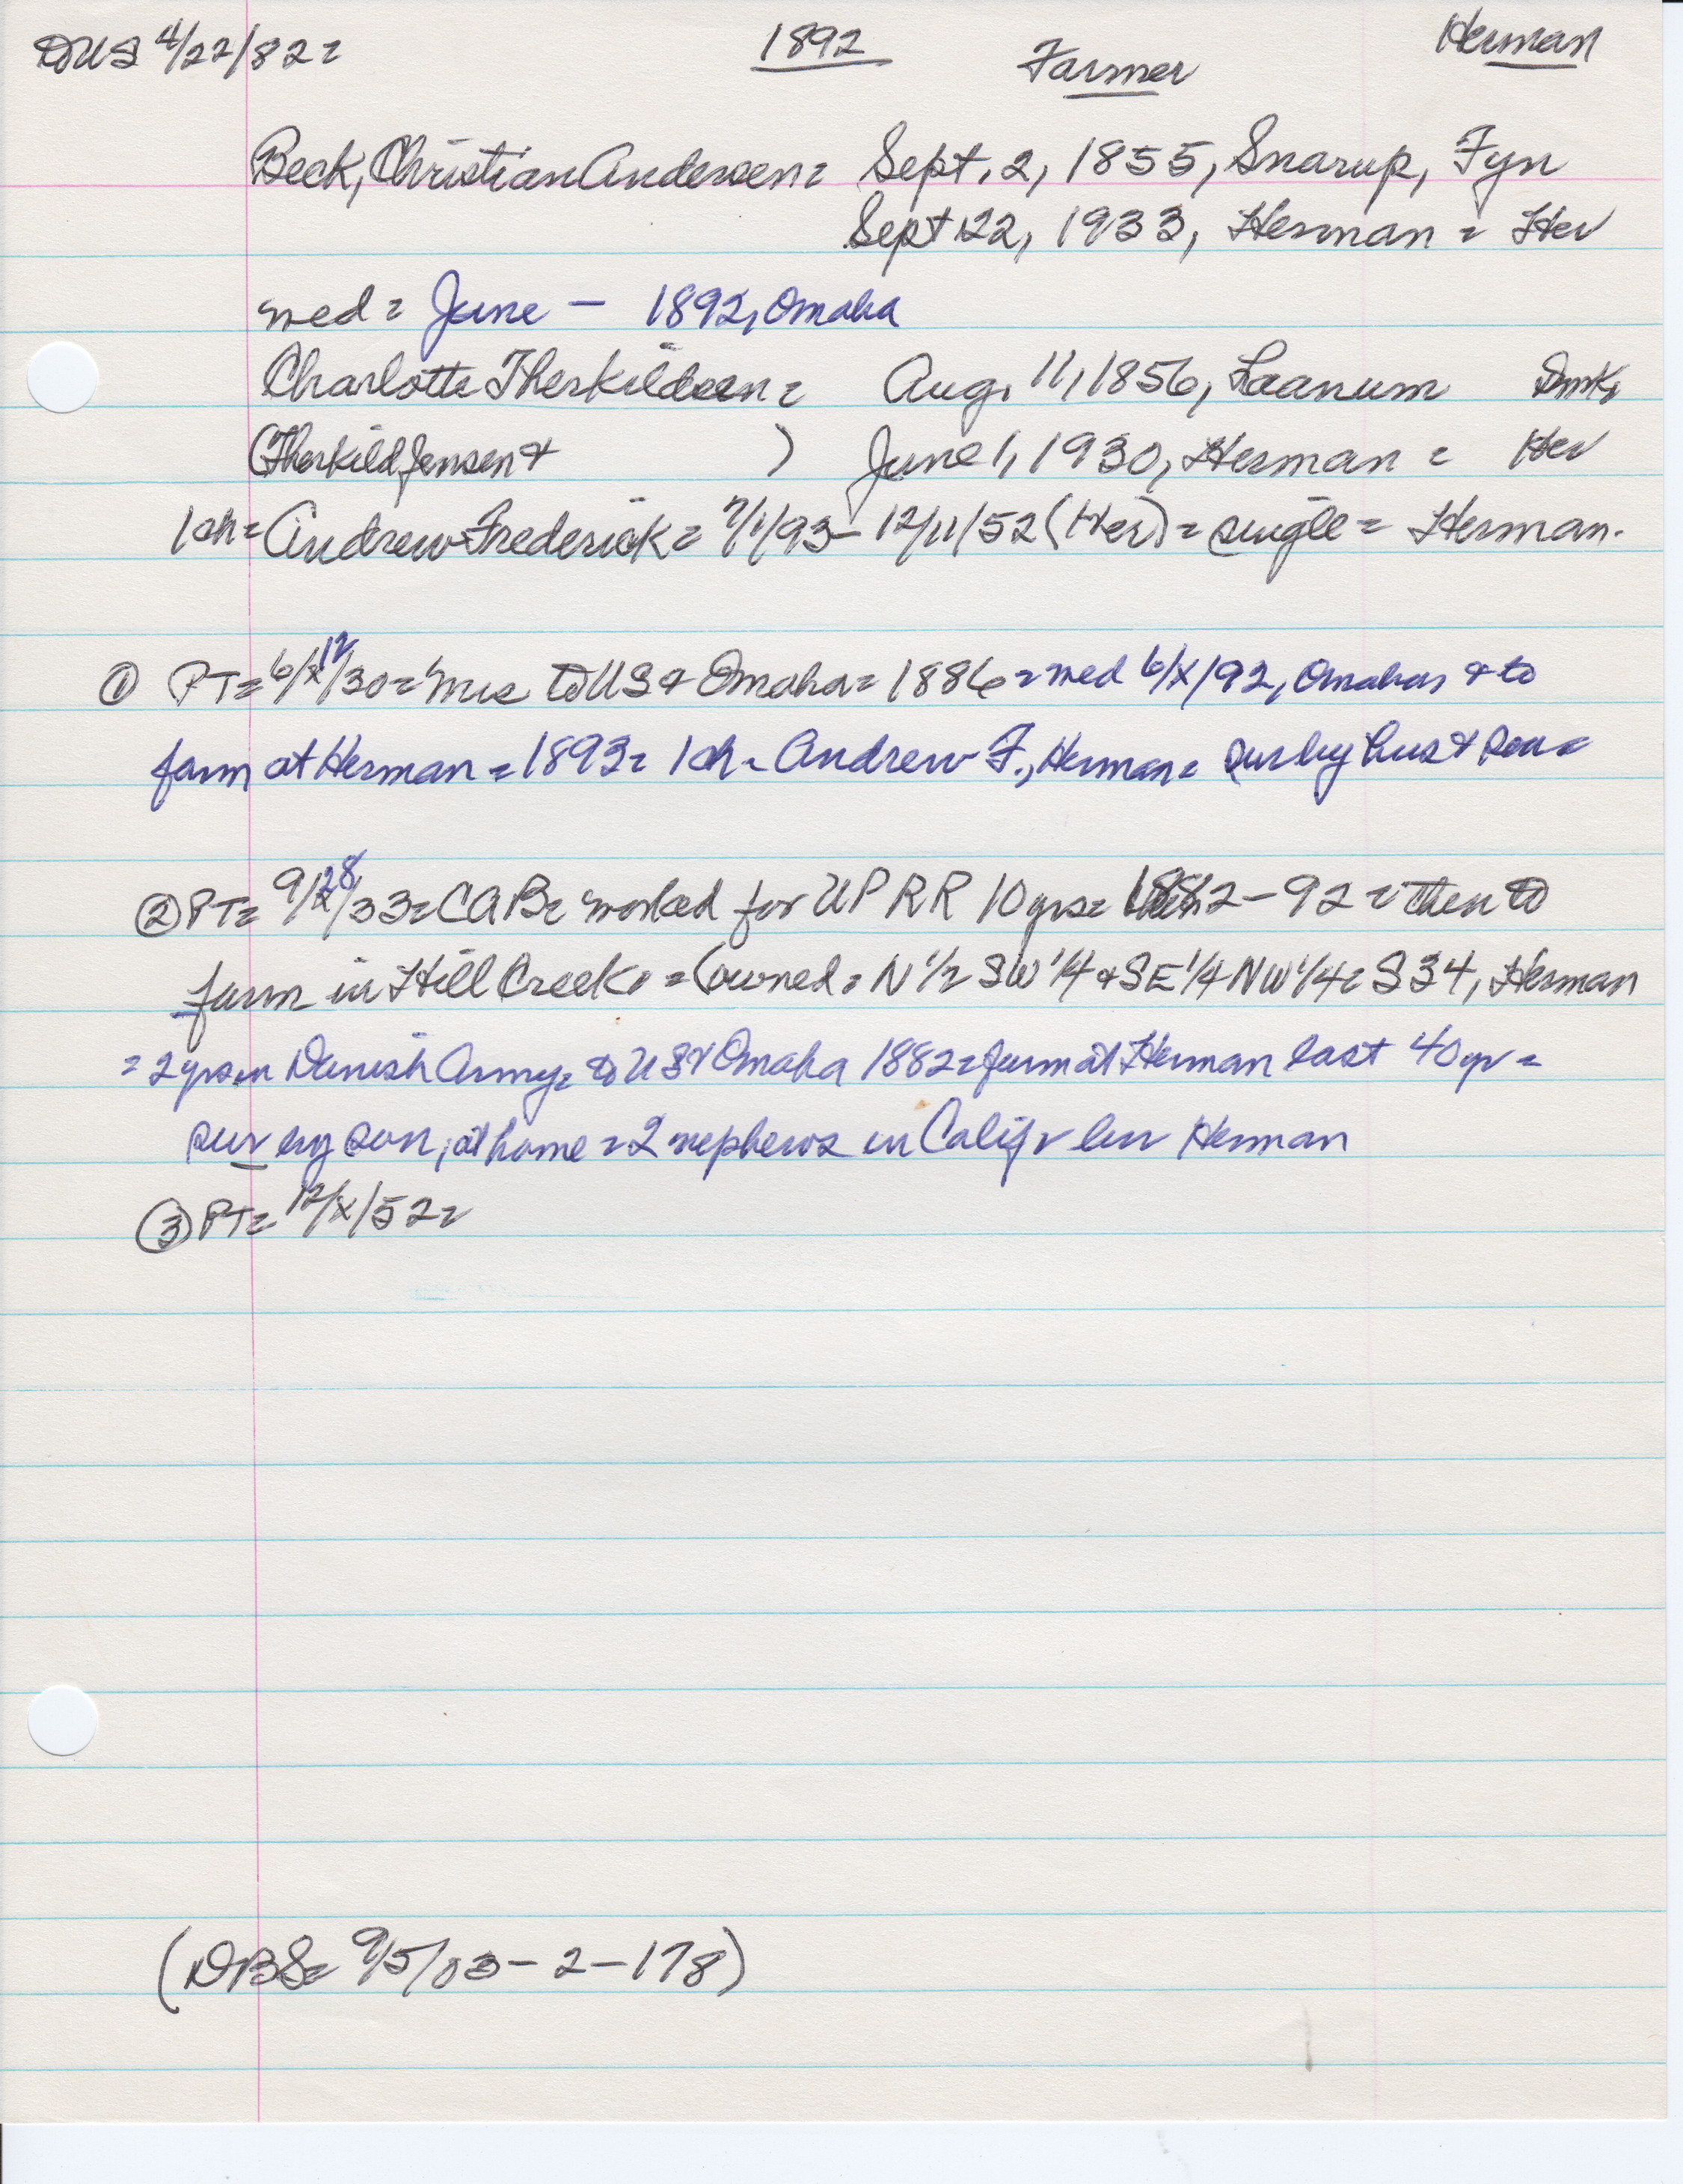 DUS 4/22/82 =
1892
Farmer
Herman
Beck, Christian Andersen = Sept. 2, 1855, Snarup, Fyn
Sept 22, 1933, Herman = Her
med = June — 1892, Omaha
Charlotte Therkildsen = Aug. 11, 1856, Laanum Dmk,
(Therkild Jensen + ) June 1, 1930, Herman = Her
1 ch = Andrew Frederick = 7/1/93 - 12/11/52 (Her) = single = Herman.
① PT = 6/12/30 = Mrs to US & Omaha = 1886 = med 6/x/92, Omaha & to
farm at Herman = 1893 = 1 ch = Andrew F., Herman = sur by hus & son =
② PT = 9/28/33 = CAB = worked for UP RR 10 yrs = 1882-92 = then to
farm in Hill Creek = (owned = N 1/2 SW 1/4 & SE 1/4 NW 1/4 = S34, Herman
= 2 yrs in Danish Army = to US & Omaha 1882 = farm at Herman last 40 yr =
sur by son, at home = 2 nephews in Calif Herman
③ PT = 12/x/52 =
(DBS = 9/5/03 - 2 - 178)